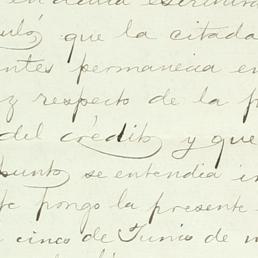 en dicha escritura
culó, que la citada
ntes permanecia en
z respecto de la f
del crédito y que
punto se entendia in
te pongo la presente
cinco de Junio de m